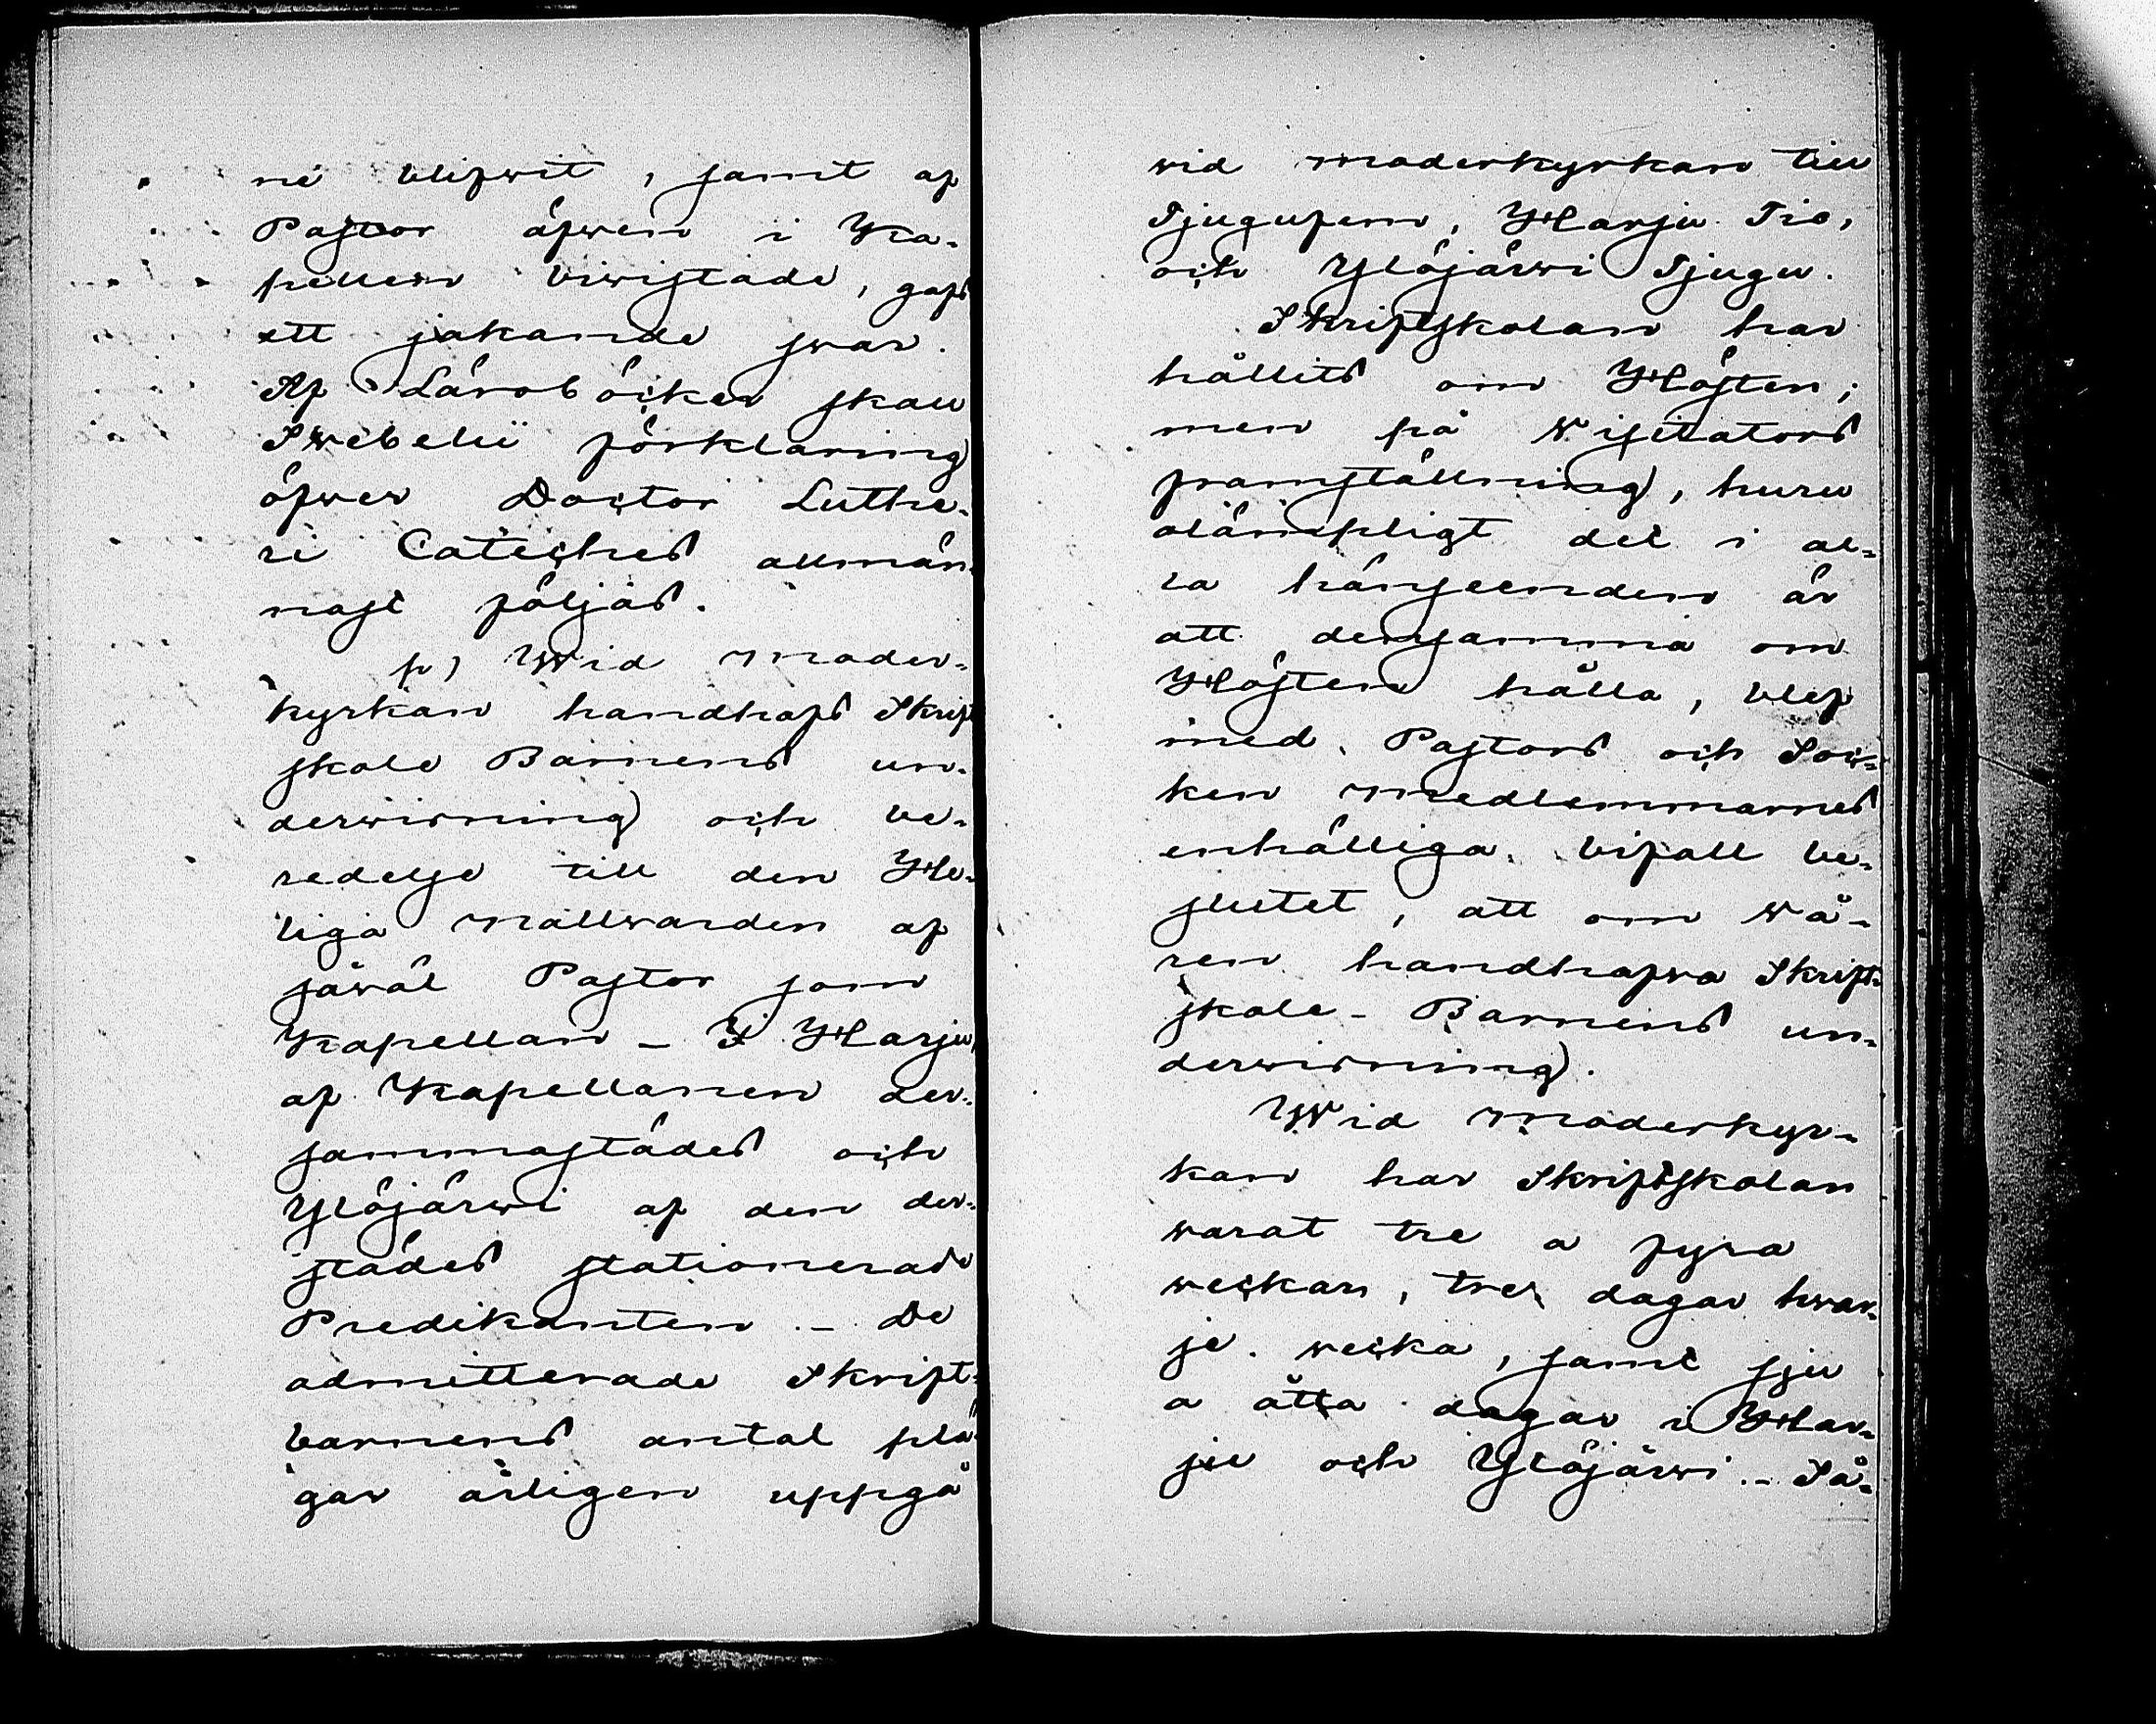 ne blifwit, samt af
Pastor äfwen i Ka-
pellen biwistade, gafs
ett jakande swar.
Af Läroböcker skall
Swebelii förklaring
öfwer Doctor Luthe-
ri Catechес allmän-
nast följas.
p) Wid moder-
kyrkan handhafs Skrift
skole Barnens un-
derwisning och be-
redelse till den He-
liga nattwarden af
såwäl Pastor som
Kapellan – I Harju
af Kapellanen der-
sammastädes och
Ylöjärwi af den der-
städes stationerade
Predikanten. – De
admitterade Skrift-
barnens antal plä-
gar årligen uppgå
wid moderkyrkan till
Tjugufem, Harju Tio,
och Ylöjärwi Tjugu.
Skriftskolan har
hållits om Hösten;
men på Wisitators
framställning, huru
olämpligt det i al-
la hänseenden är
att densamma om
Hösten hålla, blef
med Pastors och Soc-
ken medlemmarnes
enhälliga bifall be-
slutet, att om Wå-
ren handhafwa Skrift-
skole-Barnens un-
derwisning.
Wid moderkyr-
kan har Skriftskolan
warat tre a fyra
weckor, tre dagar hwar-
je wecka, samt sju
a åtta dagar i Har-
ju och Ylöjärwi. – Så-